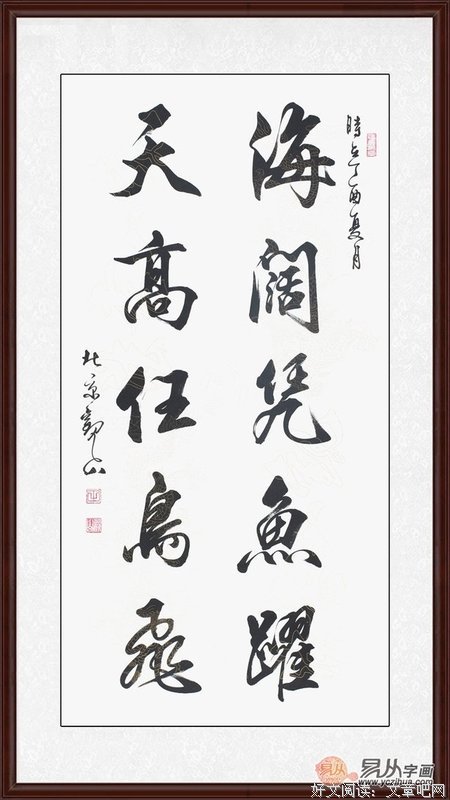 時在丁酉夏月
海闊凭魚躍
天髙任鳥飛
北京
易从
易从字画
www.yczihua.com
好文阅读：文章吧网